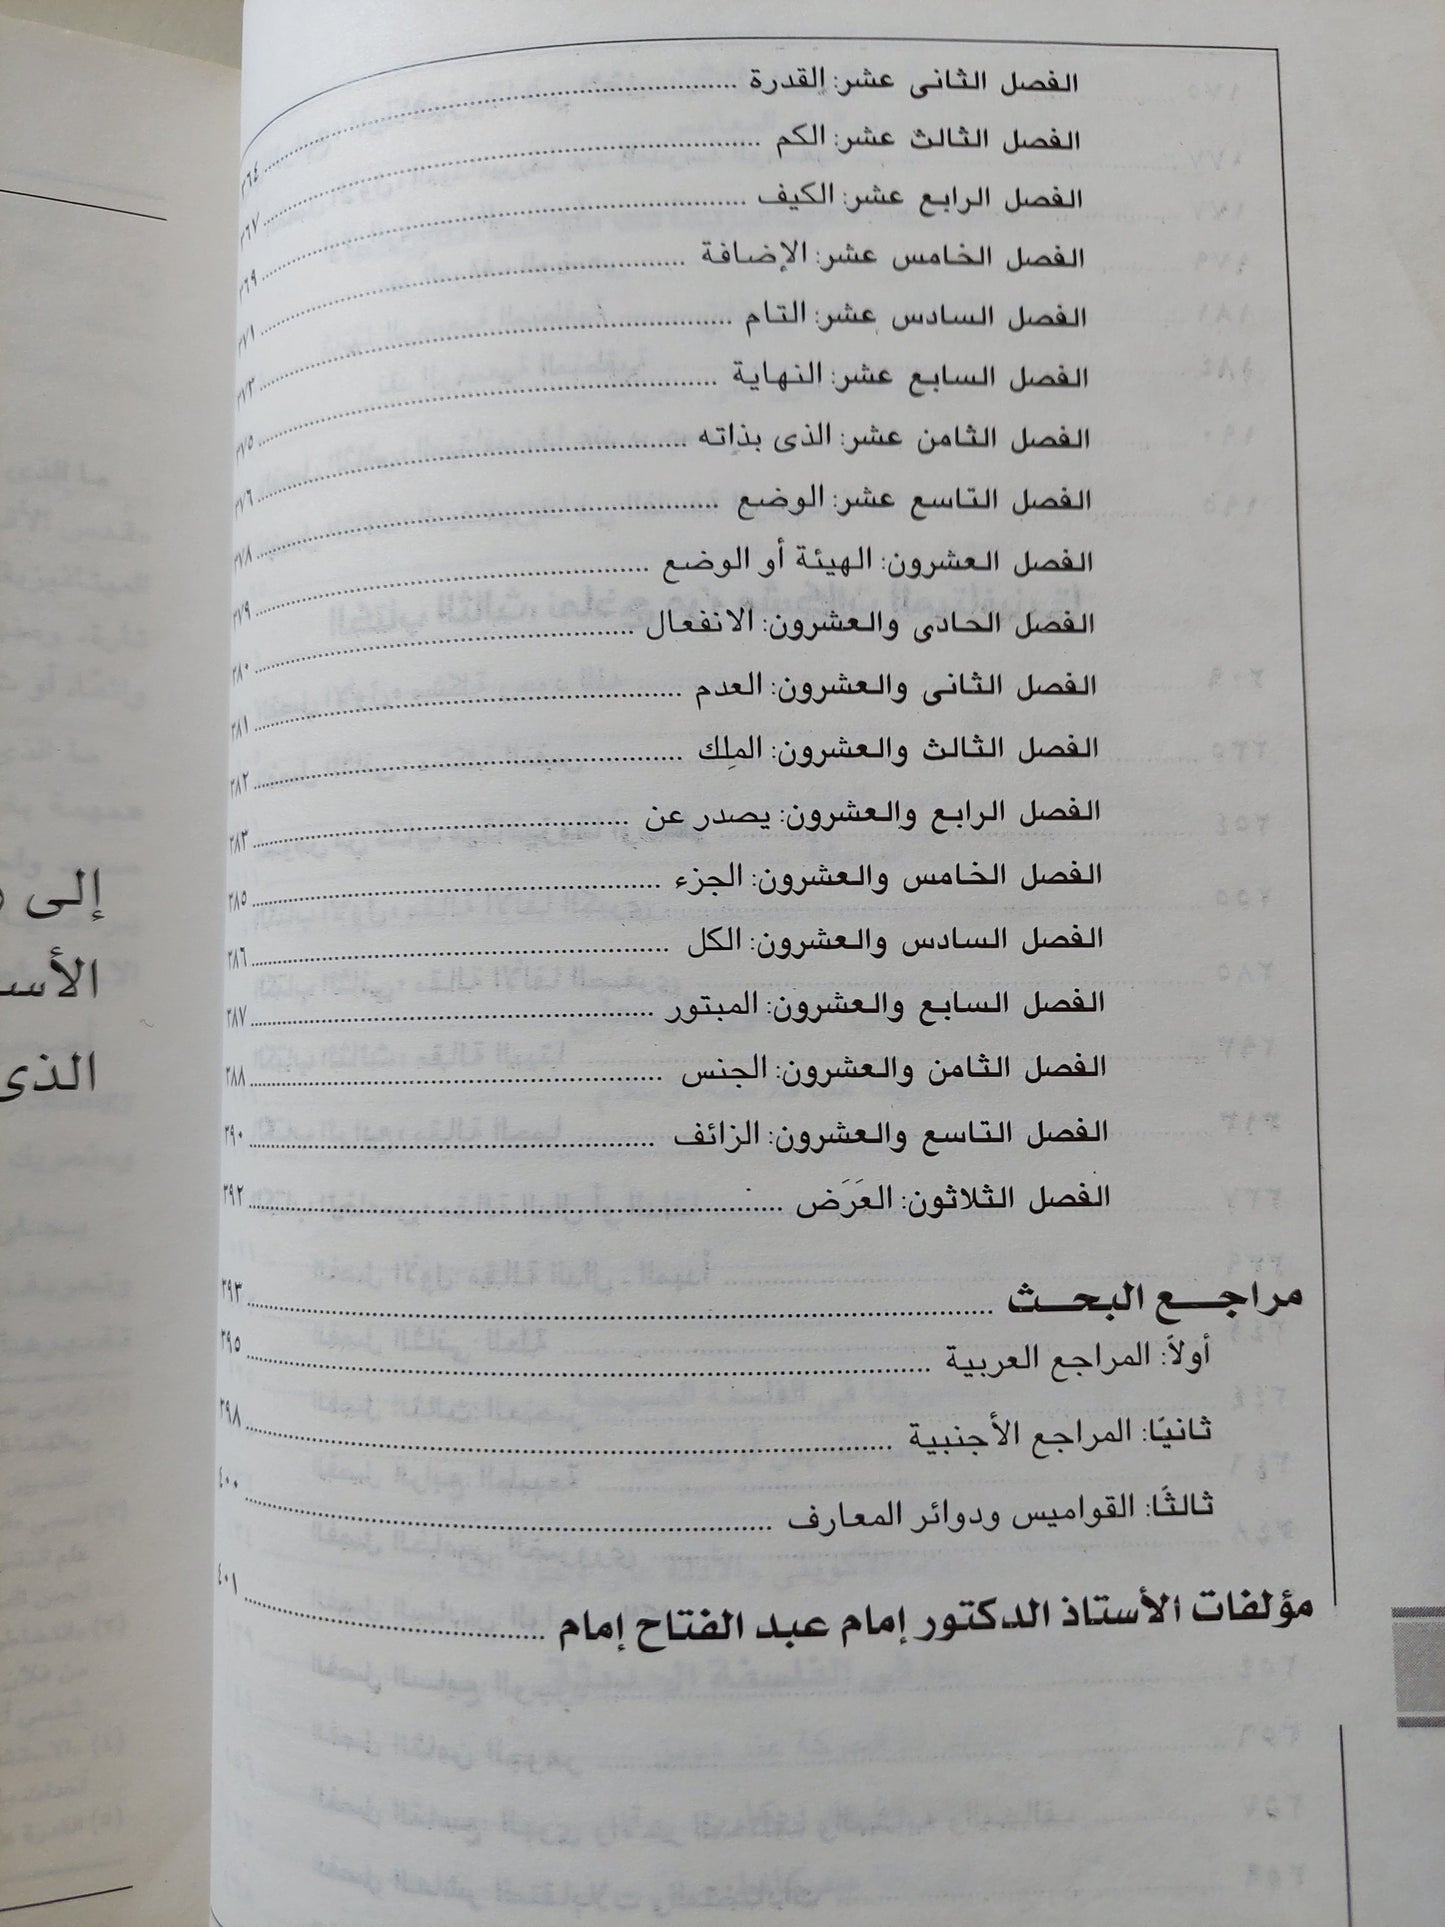 الفصل الثانى عشر: القدرة ................ ٣٦٤
الفصل الثالث عشر: الكم ................ ٣٦٧
الفصل الرابع عشر: الكيف ................ ٣٦٩
الفصل الخامس عشر: الإضافة ................ ٣٧١
الفصل السادس عشر: التام ................ ٣٧٣
الفصل السابع عشر: النهاية ................ ٣٧٥
الفصل الثامن عشر: الذى بذاته ................ ٣٧٦
الفصل التاسع عشر: الوضع ................ ٣٧٨
الفصل العشرون: الهيئة أو الوضع ................ ٣٧٩
الفصل الحادى والعشرون: الانفعال ................ ٣٨٠
الفصل الثانى والعشرون: العدم ................ ٣٨١
الفصل الثالث والعشرون: الملِك ................ ٣٨٢
الفصل الرابع والعشرون: يصدر عن ................ ٣٨٣
الفصل الخامس والعشرون: الجزء ................ ٣٨٥
الفصل السادس والعشرون: الكل ................ ٣٨٦
الفصل السابع والعشرون: المبتور ................ ٣٨٧
الفصل الثامن والعشرون: الجنس ................ ٣٨٨
الفصل التاسع والعشرون: الزائف ................ ٣٩٠
الفصل الثلاثون: العَرَض ................ ٣٩٢
مراجع البحث ................ ٣٩٣
أولاً: المراجع العربية ................ ٣٩٥
ثانيًا: المراجع الأجنبية ................ ٣٩٨
ثالثًا: القواميس ودوائر المعارف ................ ٤٠٠
مؤلفات الأستاذ الدكتور إمام عبد الفتاح إمام ................ ٤٠١
إلى
الذى